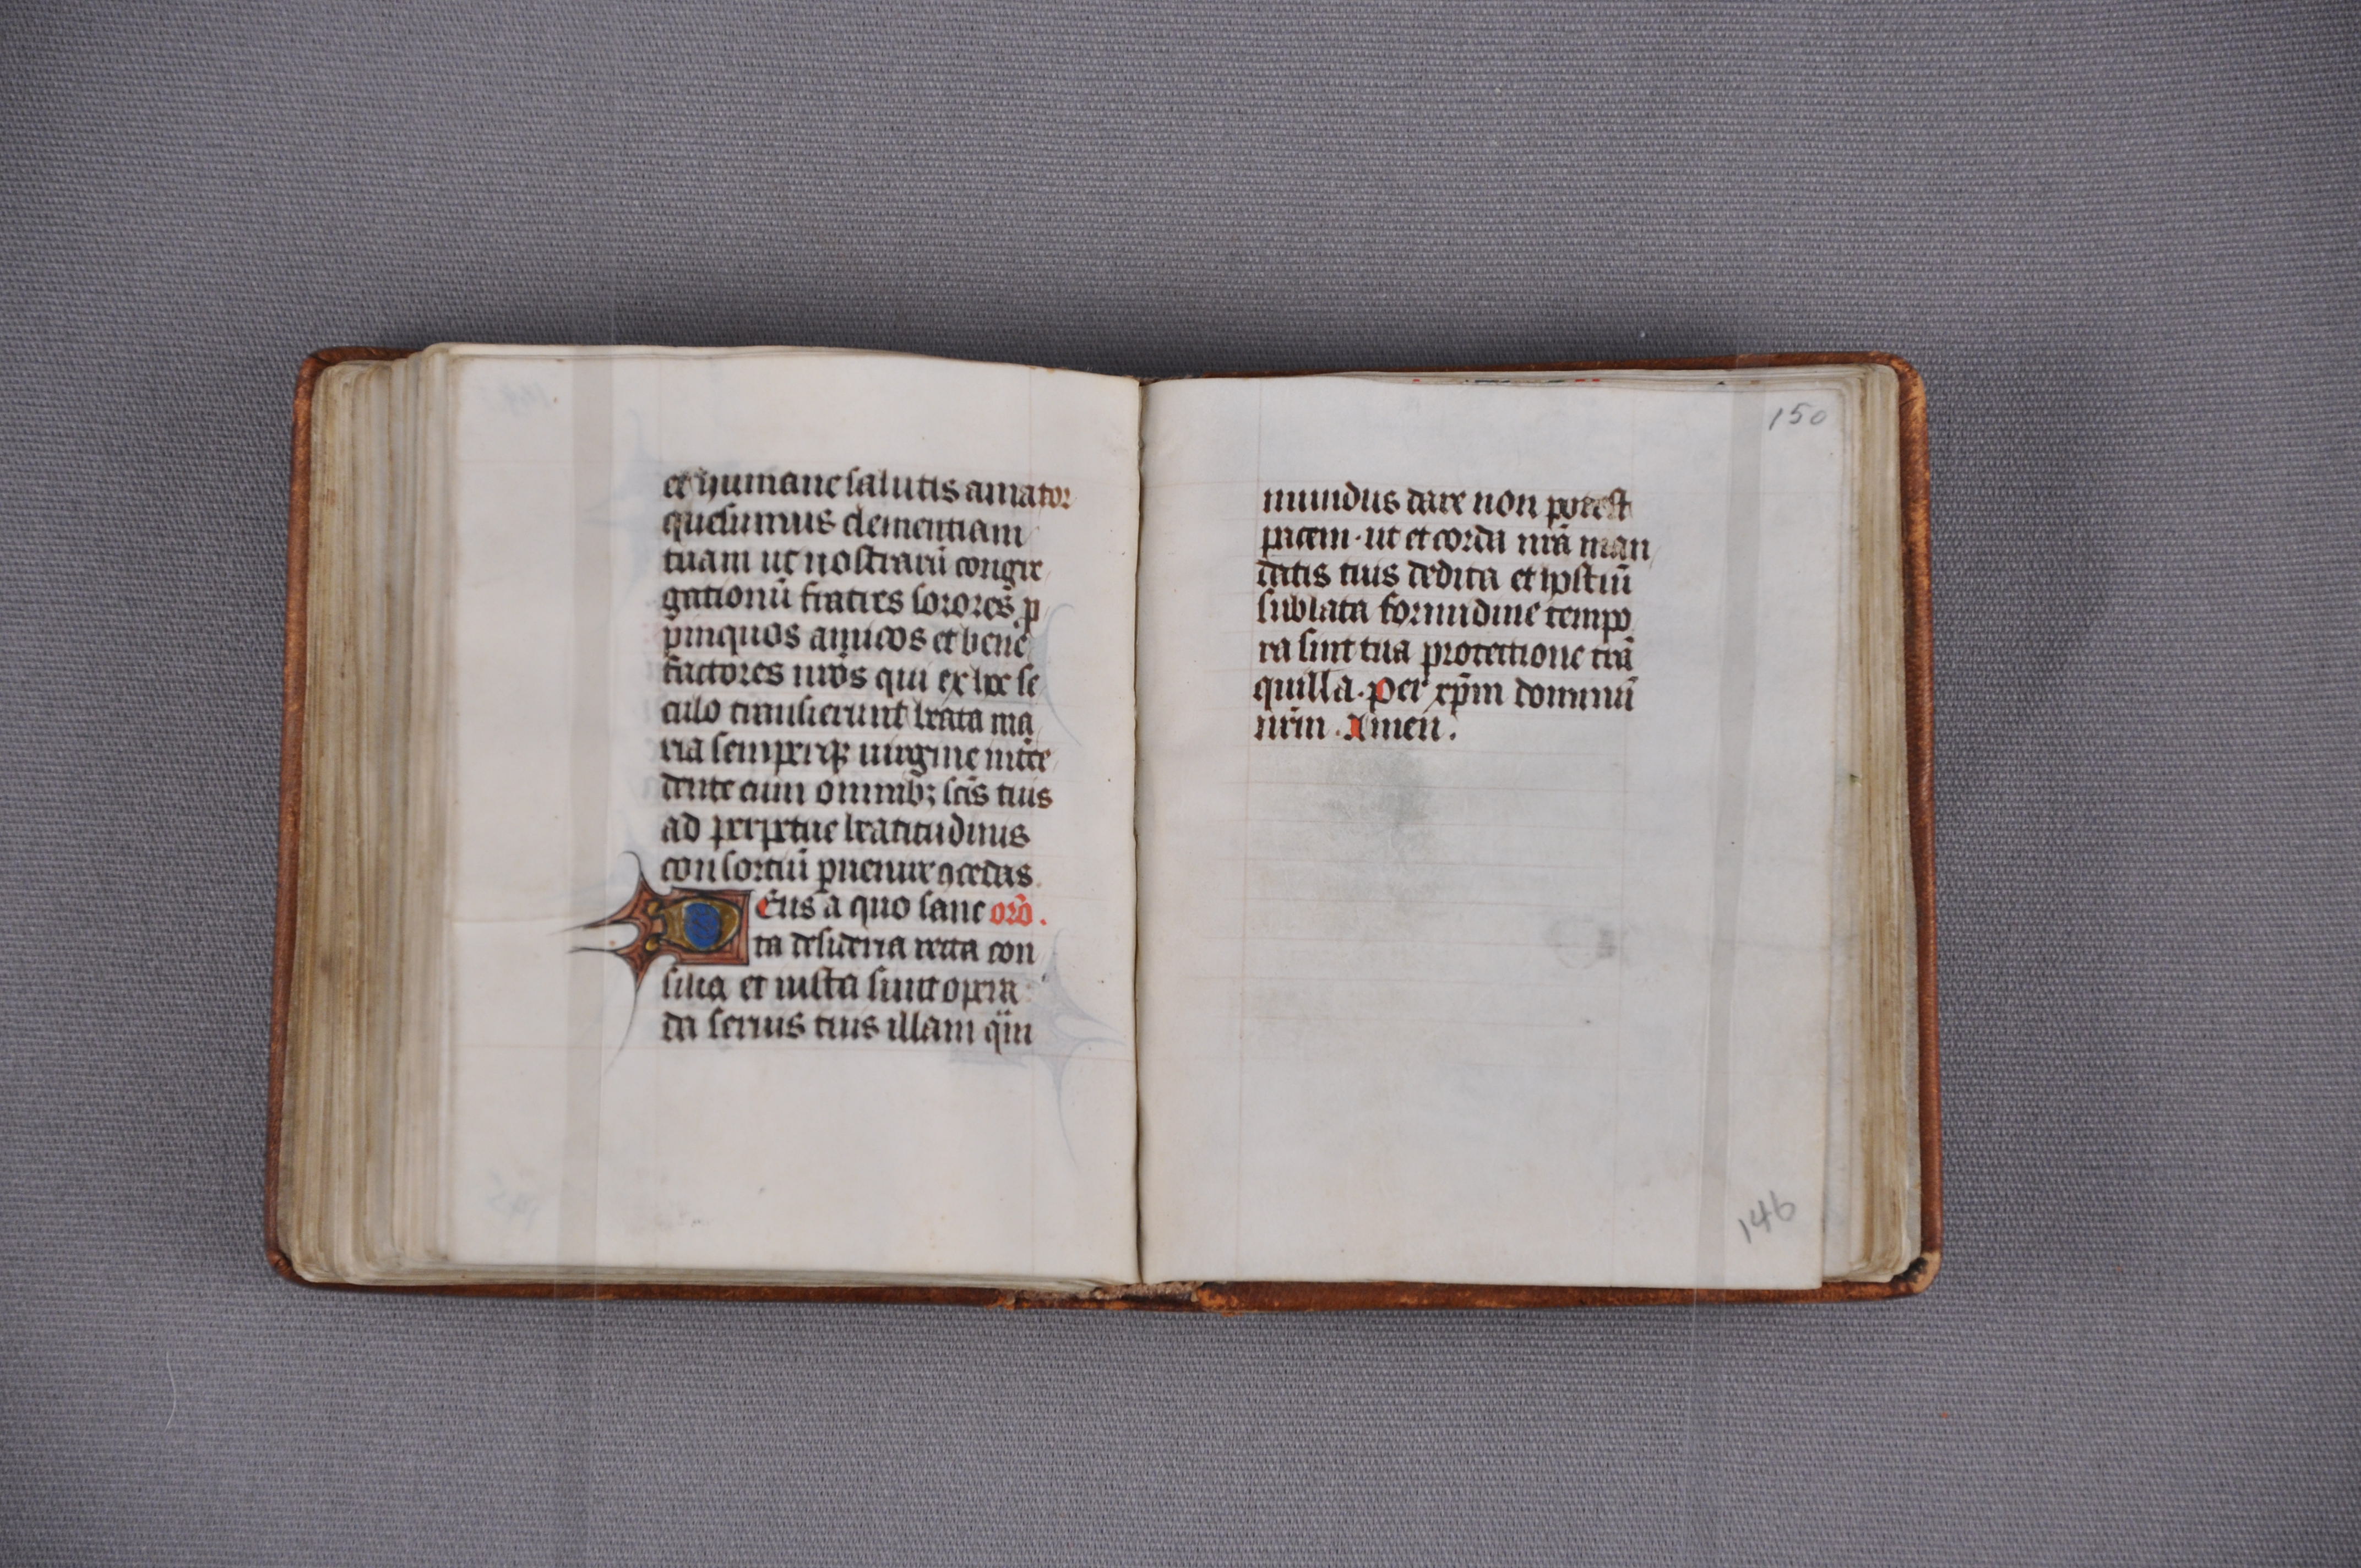 et humane salutis amator
quesumus clementiam
tuam ut nostrarū congre
gationū fratres sorores p̄
pinquos amicos et bene
factores nr̄os qui ex hoc se
culo transierunt beata ma
ria semperqꝫ uirgine int̄ce
dente cum omnibꝫ sc̄is tuis
ad perpetue beatitudinis
consortiū ꝑuenire ꝯcedas
Deus a quo sanc orō.
ta desideria recta con
silia et iusta sunt opera
da seruis tuis illam qͥm
150
mundus dare non potest
pacem · ut et corda nr̄a man
datis tuis dedita et hostiū
sublata formidine tempo
ra sint tua protectione trā
quilla. Per xp̄m dominū
nr̄m. Amen.
146